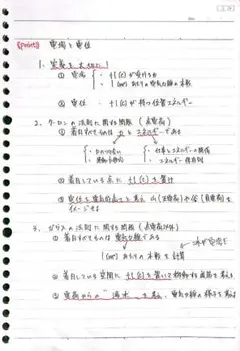 (point) 電場と電位
1. 定義を大切に!
① 電場 ・+1(C)が受ける力
・1(m²)あたりの電気力線の本数
② 電位 ・+1(C)が持つ位置エネルギー
2. クーロンの法則に関する問題 (点電荷)
① 着目すべきものは 力とエネルギーである
・力のつりあい
・仕事とエネルギーの関係
・エネルギー保存則
② 着目している点に +1(C)を置け
③ 電位を 考え 山(正電荷)や谷(負電荷)を
イメージせよ
ガウスの法則に関する問題
① 着目すべきものは 電気力線である
1(m²)あたりの本数を計算
② 着目している空間に +1(C)を置いて
③ 電荷からの 考え、電気力線の様子を